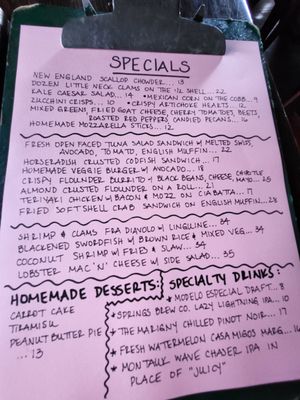 SPECIALS
NEW ENGLAND SCALLOP CHOWDER... 13
DOZEN LITTLE NECK CLAMS ON THE ½ SHELL... 22
KALE CAESAR SALAD... 14 • MEXICAN CORN ON THE COBB... 9
ZUCCHINI CRISPS... 10 • CRISPY ARTICHOKE HEARTS... 12
MIXED GREENS, FRIED GOAT CHEESE, CHERRY TOMATOES, BEETS,
ROASTED RED PEPPERS, CANDIED PECANS... 16
HOMEMADE MOZZARELLA STICKS... 12
FRESH OPEN FACED TUNA SALAD SANDWICH W/ MELTED SWISS,
AVOCADO, TOMATO, ENGLISH MUFFIN... 22
HORSERADISH CRUSTED CODFISH SANDWICH... 17
HOMEMADE VEGGIE BURGER W/ AVOCADO... 18
CRISPY FLOUNDER BURRITO W/ BLACK BEANS, CHEESE, CHIPOTLE
MAYO... 25
ALMOND CRUSTED FLOUNDER ON A ROLL... 21
TERIYAKI CHICKEN W/ BACON & MOZZ ON CIABATTA... 17
FRIED SOFTSHELL CRAB SANDWICH ON ENGLISH MUFFIN... 28
SHRIMP & CLAMS FRA DIAVOLO W/ LINGUINE... 34
BLACKENED SWORDFISH W/ BROWN RICE & MIXED VEG... 34
COCONUT SHRIMP W/ FRIES & SLAW... 34
LOBSTER MAC 'N' CHEESE W/ SIDE SALAD... 35
HOMEMADE DESSERTS:
CARROT CAKE
TIRAMISU
PEANUT BUTTER PIE
... 13
SPECIALTY DRINKS:
* MODELO ESPECIAL DRAFT... 8
* SPRINGS BREW CO. LAZY LIGHTNING IPA... 10
* THE MARIGNY CHILLED PINOT NOIR... 17
* FRESH WATERMELON CASAMIGOS MARG... 16
* MONTAUK WAVE CHASER IPA IN
PLACE OF "JUICY"